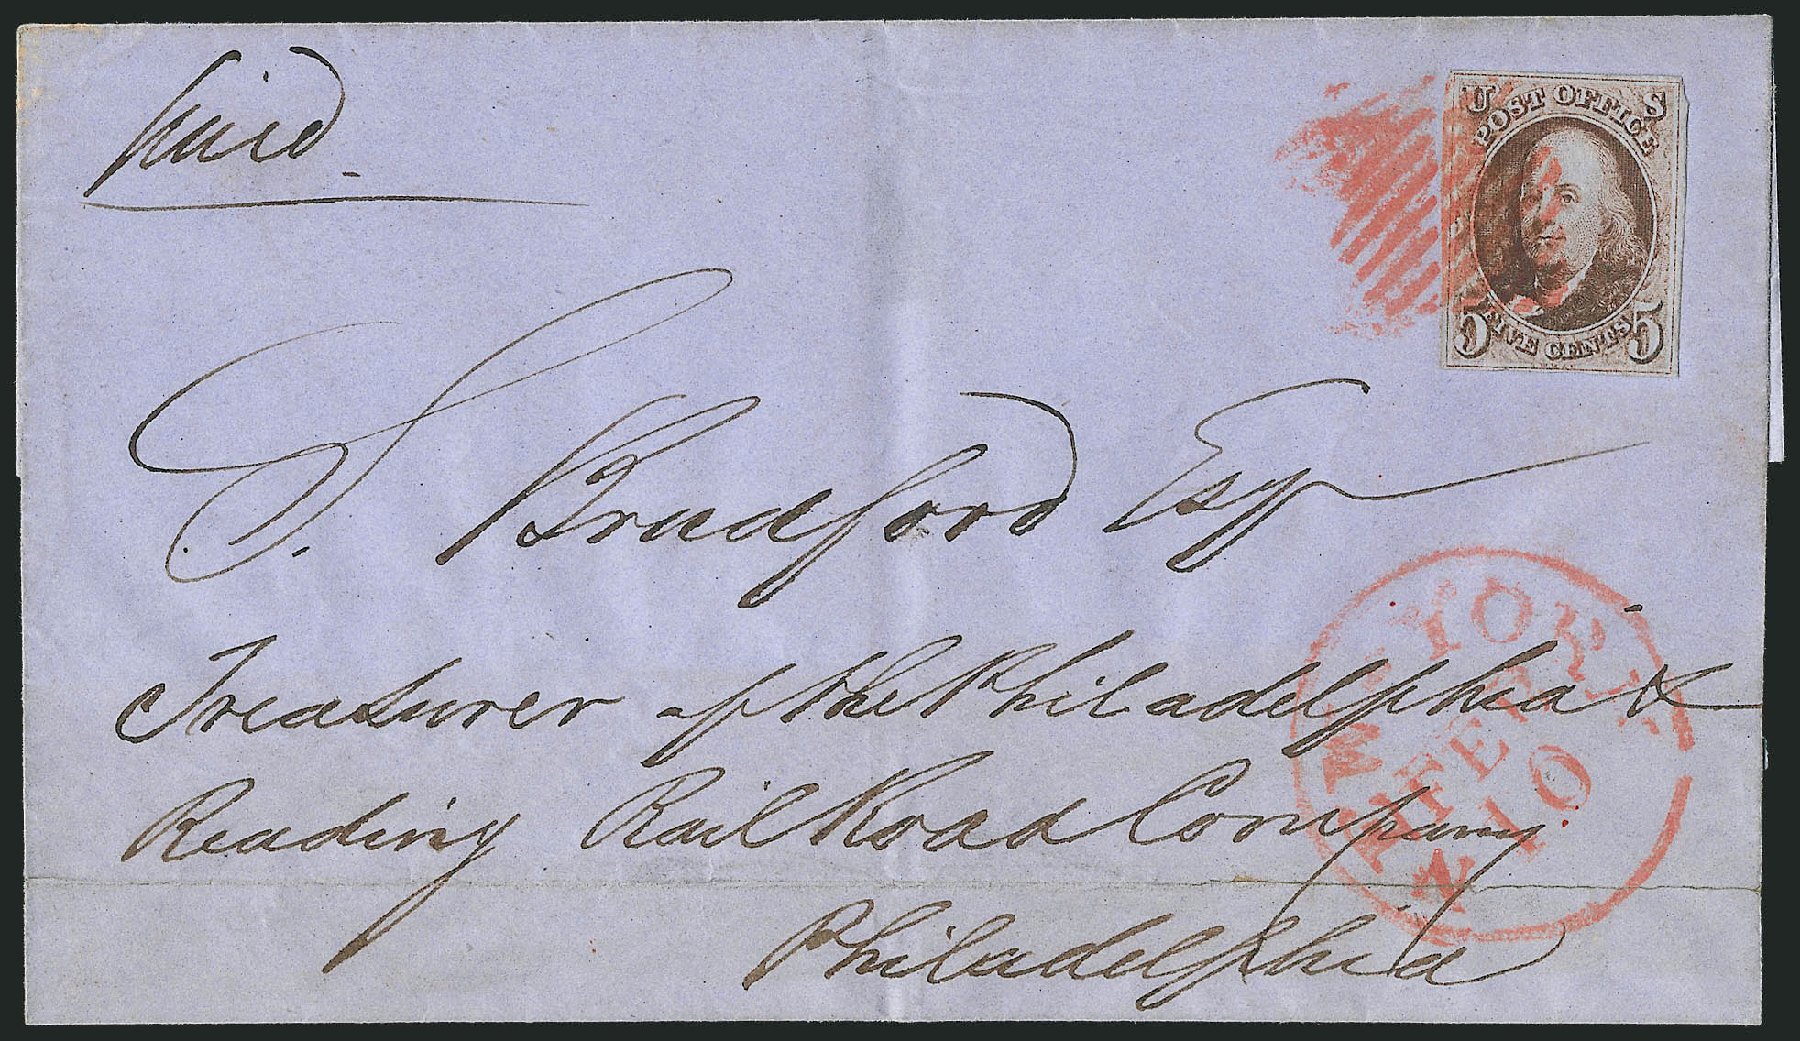 Paid
U S
POST OFFICE
5 FIVE CENTS 5
S. Bradford Esqr
Treasurer of the Philadelphia &
Reading Rail Road Company
Philadelphia
NEW YORK
FEB
10